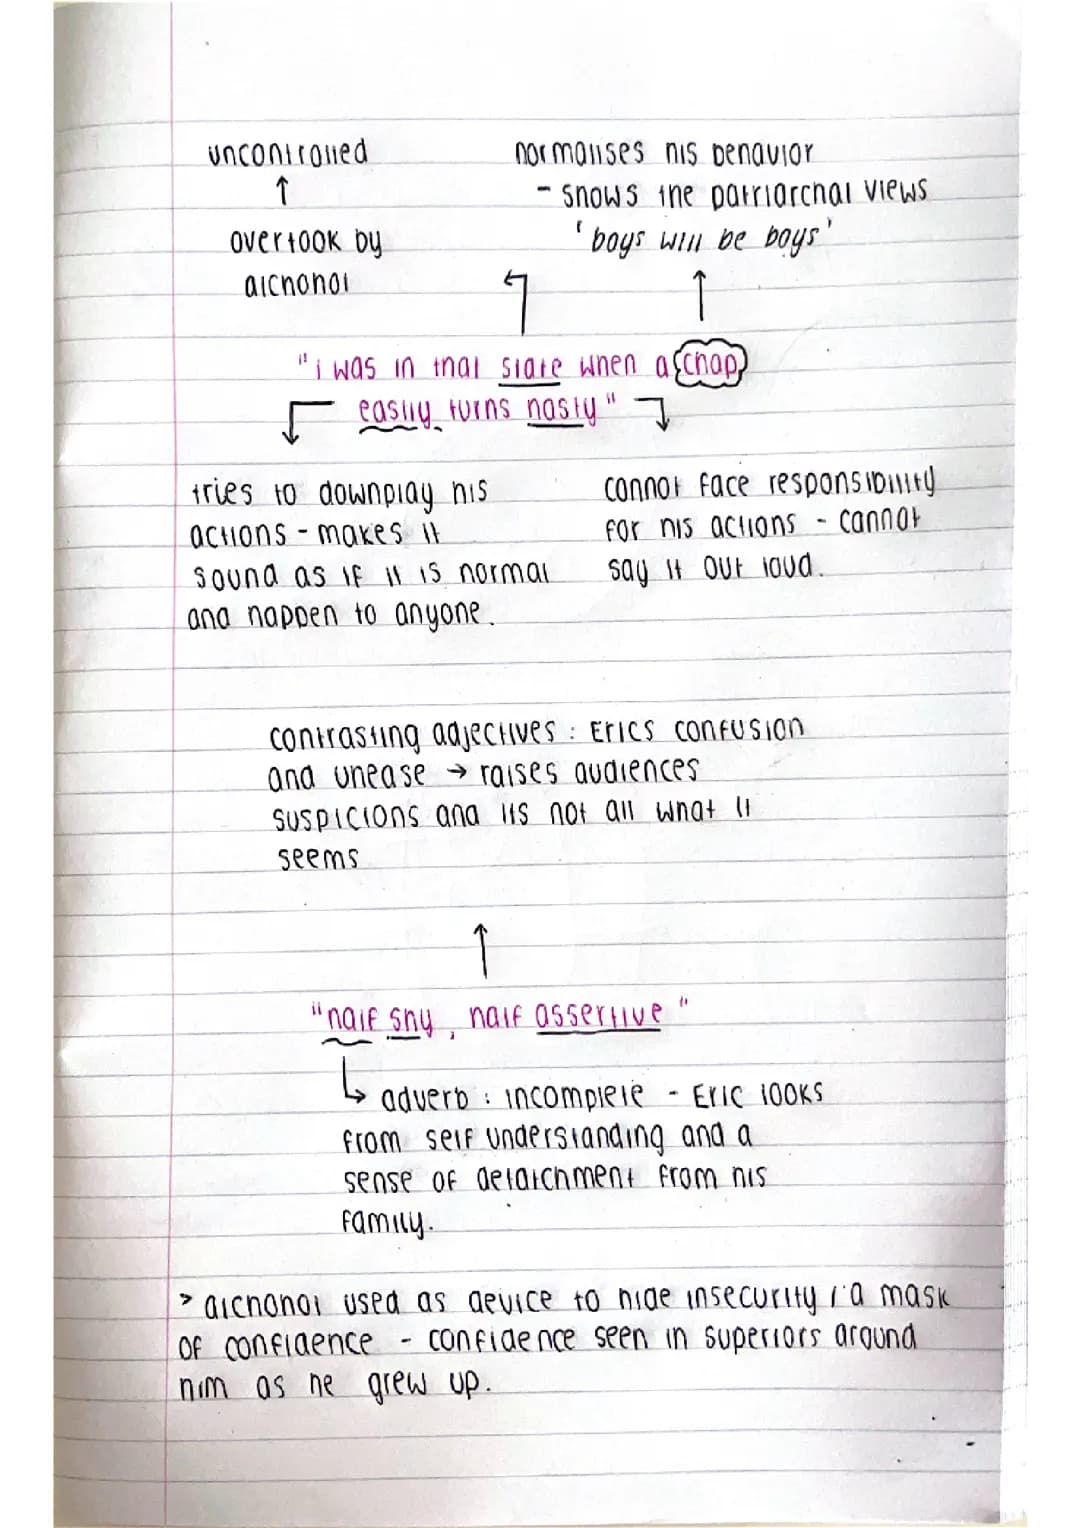 uncontrolled
↑
overtook by
alchohol
normalises his behavior
- shows the patriarchal views
'boys will be boys'
"i was in that state when a chap
easily turns nasty"
tries to downplay his
actions - makes it
sound as if it is normal
and happen to anyone.
cannot face responsibility
for his actions - cannot
say it out loud.
contrasting adjectives : Erics confusion
and unease → raises audiences
suspicions and its not all what it
seems
↑
"half shy, half assertive"
↳ adverb : incomplete - Eric looks
from self understanding and a
sense of detatchment from his
family.
> alchohol used as device to hide insecurity / a mask
of confidence - confidence seen in superiors around
him as he grew up.